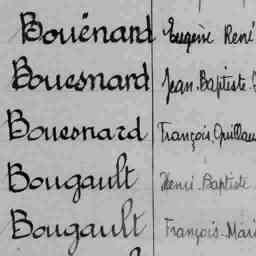 Bouënard Eugène René
Bouesnard Jean Baptiste
Bouesnard François Guillau
Bougault Henri Baptiste
Bougault François Mari